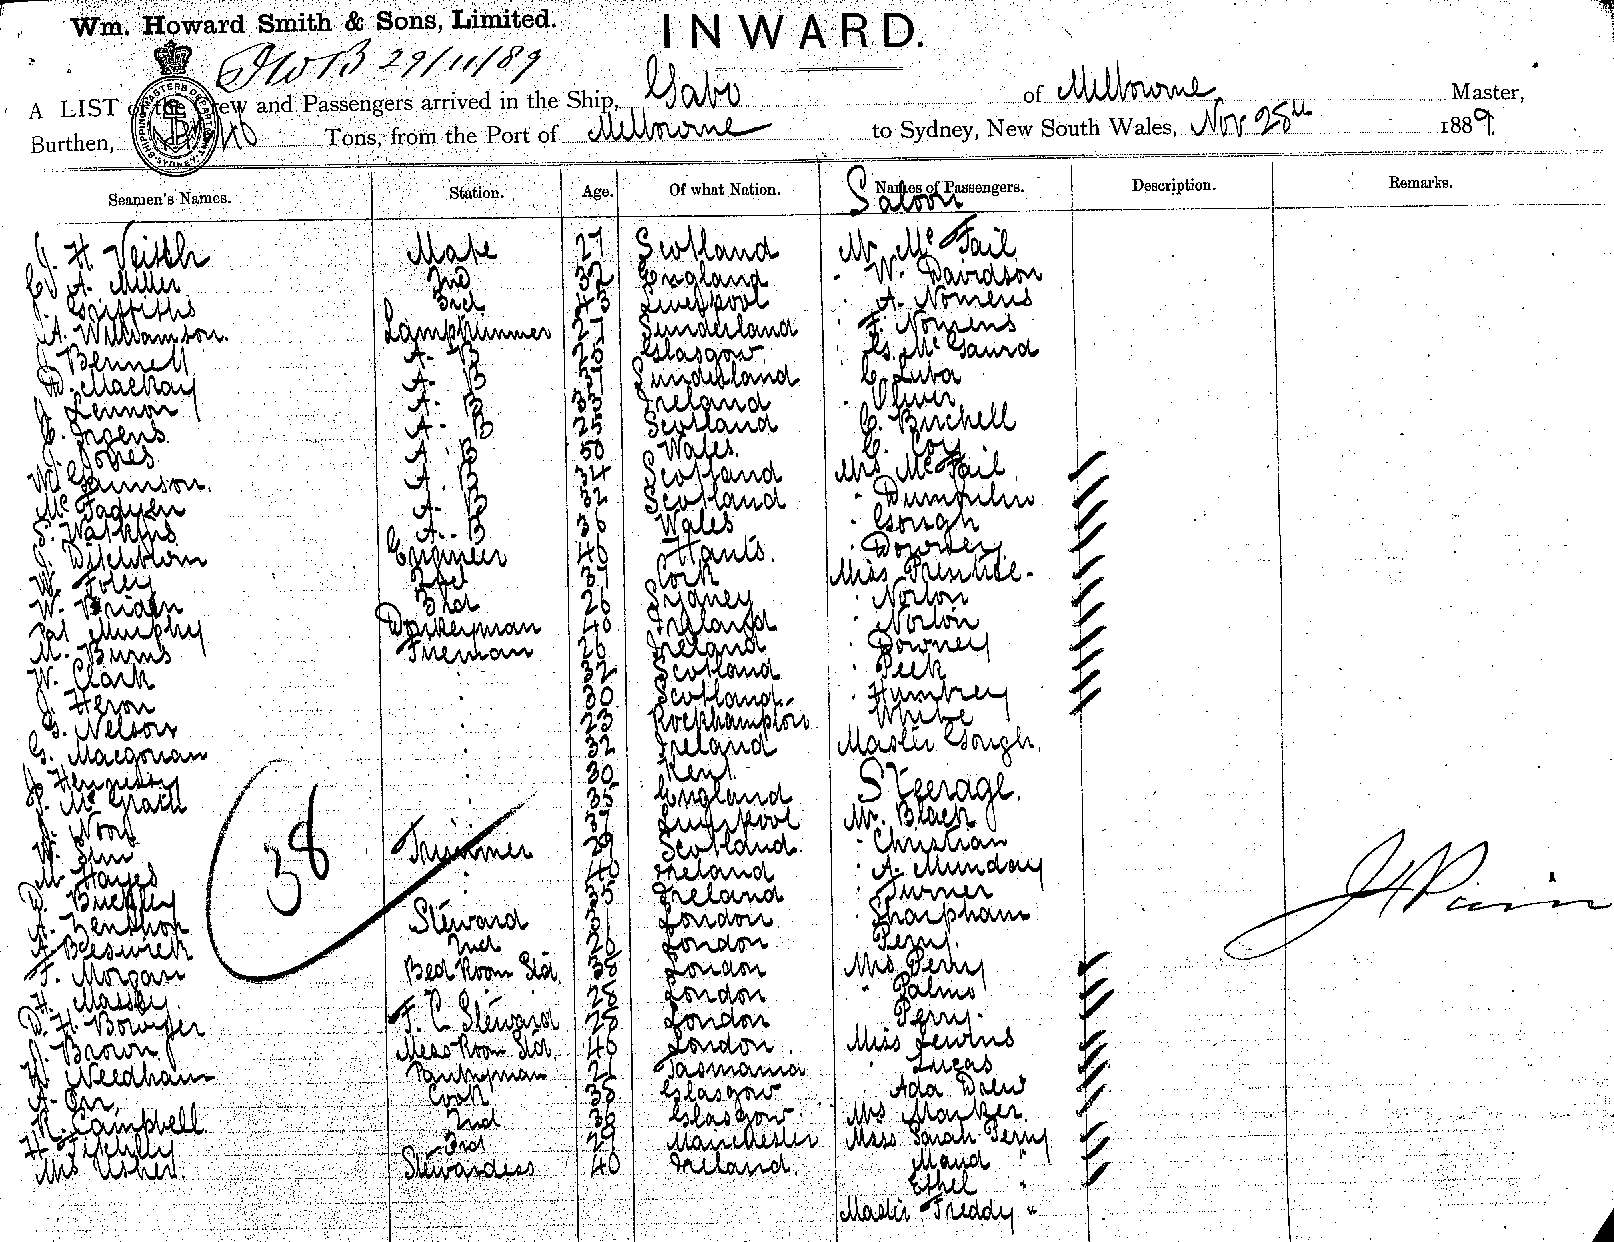 Wm. Howard Smith & Sons, Limited.
INWARD.
29/11/89
A LIST of the Crew and Passengers arrived in the Ship, Gabo of Melbourne Master,
Burthen, Tons, from the Port of Melbourne to Sydney, New South Wales, Nov 28th 1889
Seamen's Names. Station. Age. Of what Nation. Names of Passengers. Description. Remarks.
Saloon
J. H. Veitch Mate 27 Scotland Mr. McFail
C. A. Miller 2nd 32 England " W. Davidson
J. Griffiths 3rd 43 Liverpool " A. Nomens
A. Williamson. Lamptrimmer 27 Sunderland " F. Nomens
J. Bennett A. B Glasgow " G. McGaurd
D. Mackay A. B Sunderland " C. Luba
J. Lennon A. B 33 Ireland " Oliver
C. Irgens A. B 25 Scotland " C. Burchell
J. Jones A. B 50 Wales. " C. Coy
W. A. B 34 Scotland Mrs McFail
McFadyen A. B 32 Scotland
S. Watkins A. B 36 Wales " Gough
J. Ditchburn Engineer 46 Hants. " Downey
W. Foley 2nd 37 Cork Miss Prentice
W. Briden 3rd 26 Sydney " Norton
Pat Murphy Donkeyman 40 Ireland " Norton
M. Burns Fireman 26 Ireland " Downey
W. Clark " 32 Scotland " Peek
J. Heron " 30 Scotland " Humfrey
G. Nelson " 23 Rockhampton " White
G. Macgowan " 32 Ireland Master Gough.
J. Hennessy " 30 Kent
P. McGrath " 35 England Steerage.
Noon " 37 Liverpool Mr. Black
W. Trimmer 29 Scotland " Christian
M. Hayes " 40 Ireland " A. Munday
D. Buckley " 35 Ireland " Turner
A. Zenthon Steward 31 London " Sharpham
A. Beswick 2nd 26 London " Perry.
F. Morgan Bed Room Std. 38 London Mrs Perry
H. Massey 28 London " Palms
D. H. Bowyer F. C. Steward 28 London " Perry.
J. Brown Mess Room Std. 40 London Miss Lewins
W. Needham Pantryman 21 Tasmania " Lucas
A. Orr, Cook 38 Glasgow Ada Drew
R. Campbell 2nd 36 Glasgow Mrs
H. 3rd 29 Manchester Miss Sarah Perry
Mrs Usher. Stewardess 40 Ireland. Maud "
Ethel "
Master Freddy "
38